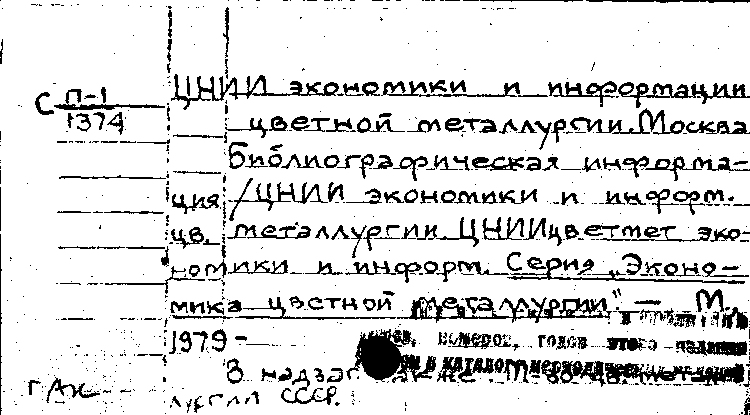 С П-1
1374
ЦНИИ экономики и информации
цветной металлургии. Москва
Библиографическая информа-
ция /ЦНИИ экономики и информ.
цв. металлургии. ЦНИИцветмет эко-
номики и информ. Серия „Эконо-
мика цветной металлургии" — М.,
1979 -
номеров, годов этого издания
в каталоге периодических изданий
В надзаг. также: М-во цв. метал-
лургии СССР.